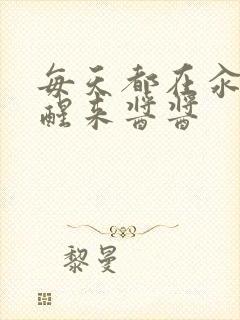 每天都在汆
醒来酱酱
黎曼